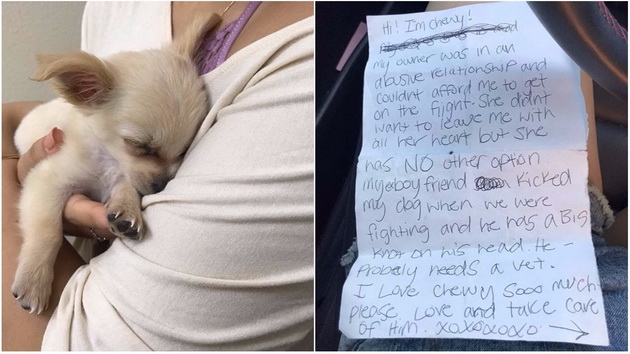 Hi! I'm Chewy!
my owner was in an
abusive relationship and
couldnt afford me to get
on the flight. She didnt
want to leave me with
all her heart but she
has NO other option
my exboyfriend kicked
my dog when we were
fighting and he has a BIG
knot on his head. He
Probely needs a vet.
I Love Chewy Sooo much-
please Love and take care
of Him. xoxoxoxo